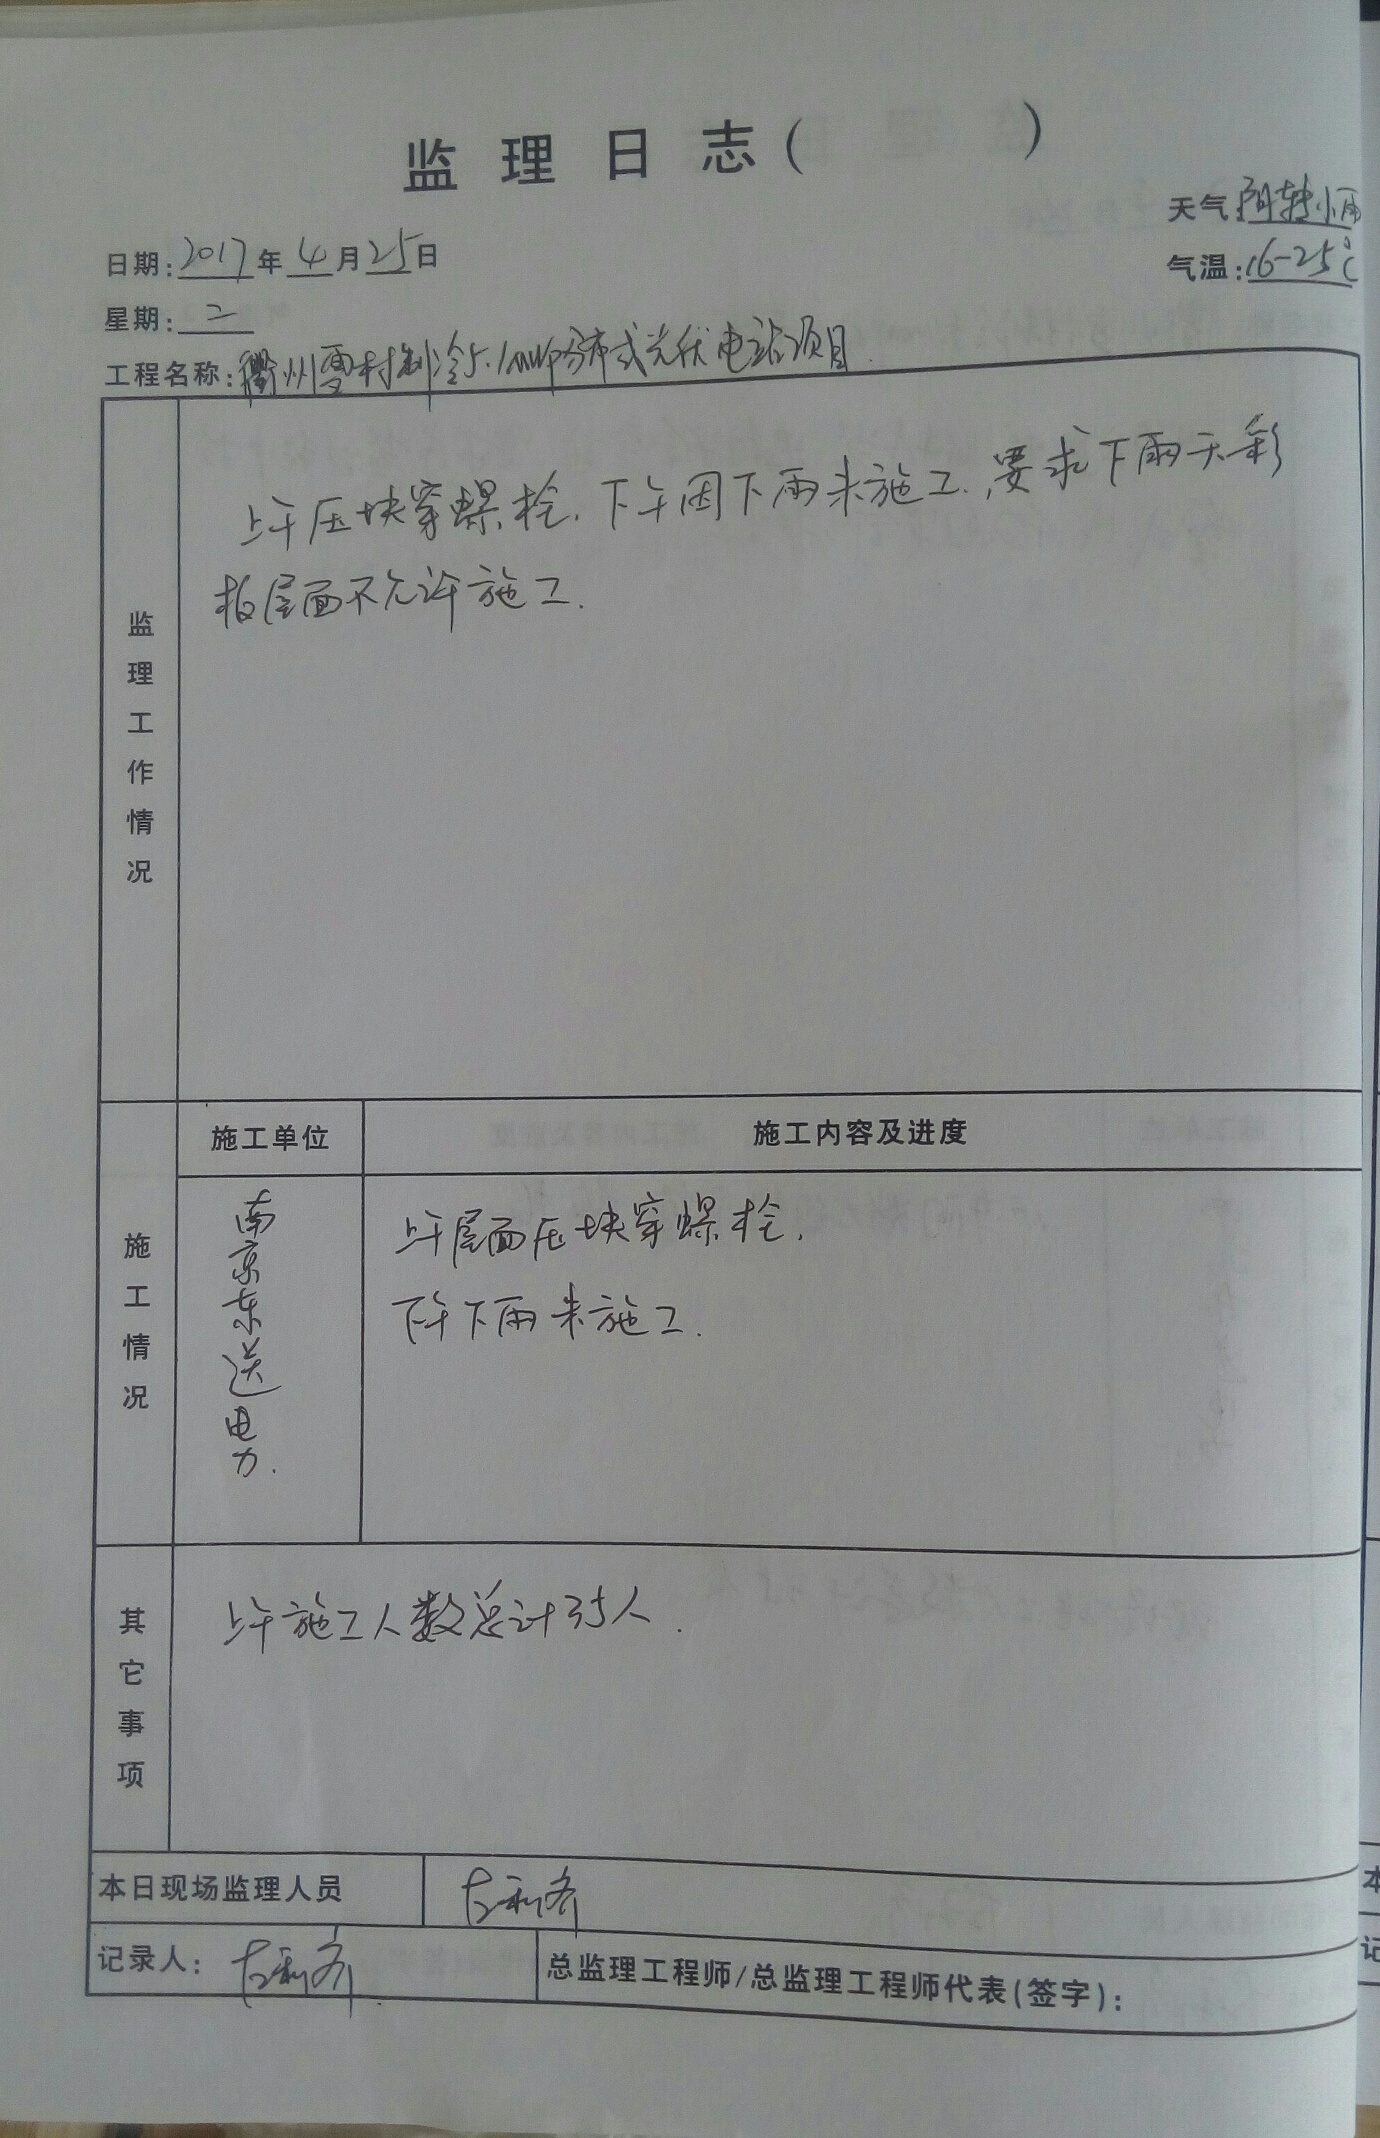 监理日志( )
天气:阴转小雨
日期:2017年4月25日
气温:16-25℃
星期:二
工程名称:衢州雪村制冷5.1MWp分布式光伏电站项目.
监理工作情况
上午压块穿螺栓.下午因下雨未施工.,要求下雨天彩
板屋面不允许施工.
施工情况
施工单位
施工内容及进度
南京东送电力.
上午屋面压块穿螺栓.
下午下雨未施工.
其它事项
上午施工人数总计35人.
本日现场监理人员
记录人:
总监理工程师/总监理工程师代表(签字):